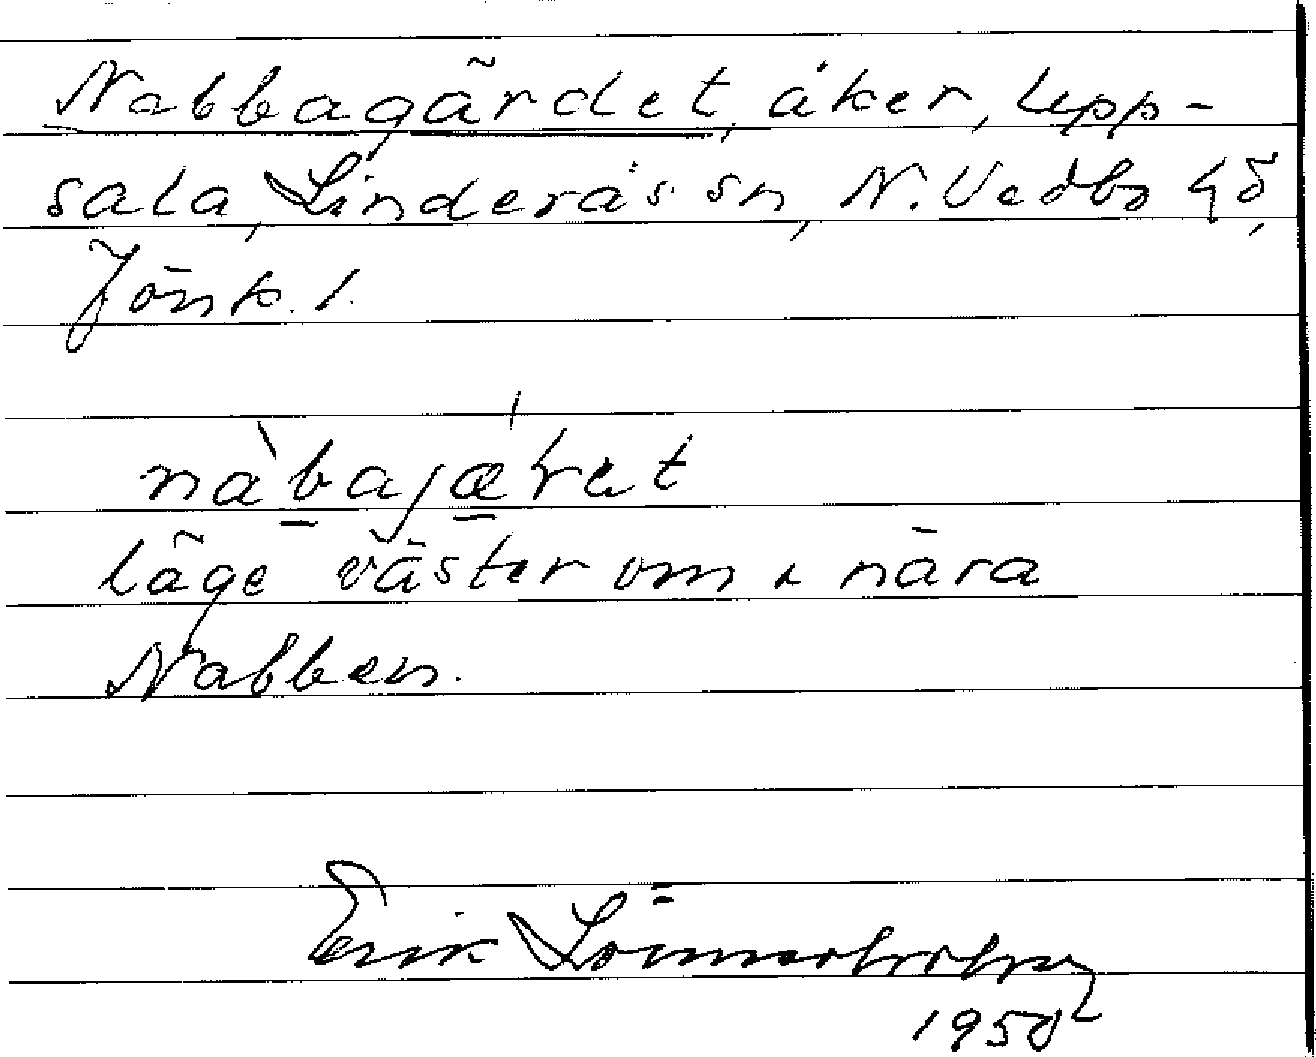 Nabbagärdet, åker, Upp-
sala, Linderås sn, N. Vedbo hd,
Jönk. l.
nàbajæ̀ret
läge väster om & nära
Nabben.
Erik
1950